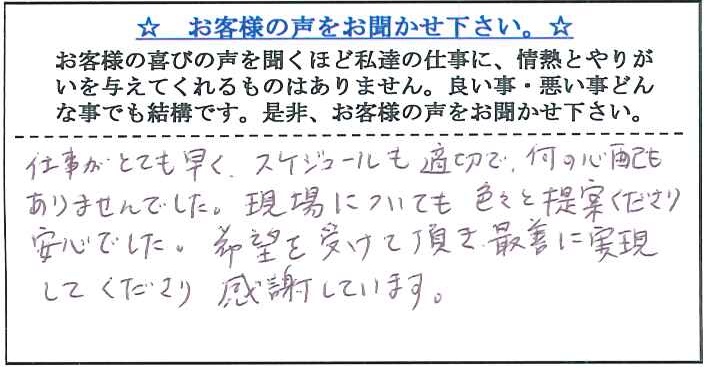 ☆ お客様の声をお聞かせ下さい。☆
お客様の喜びの声を聞くほど私達の仕事に、情熱とやりが
いを与えてくれるものはありません。良い事・悪い事どん
な事でも結構です。是非、お客様の声をお聞かせ下さい。
仕事がとても早く、スケジュールも適切で、何の心配も
ありませんでした。現場についても色々と提案くださり
安心でした。希望を受けて頂き、最善に実現
してくださり感謝しています。